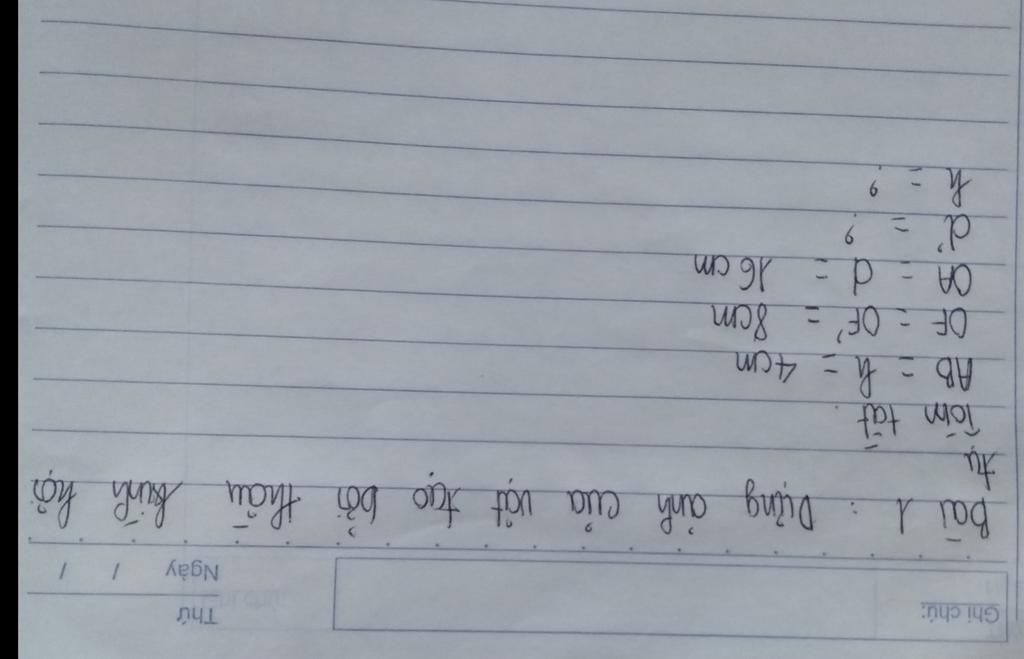 Ghi chú:
Thứ
Ngày / /
Bài 1 : Dựng ảnh của vật tạo bởi thấu kính hội
tụ
Tóm tắt
AB = h = 4cm
OF = OF' = 8cm
OA = d = 16cm
d' = ?
h = ?